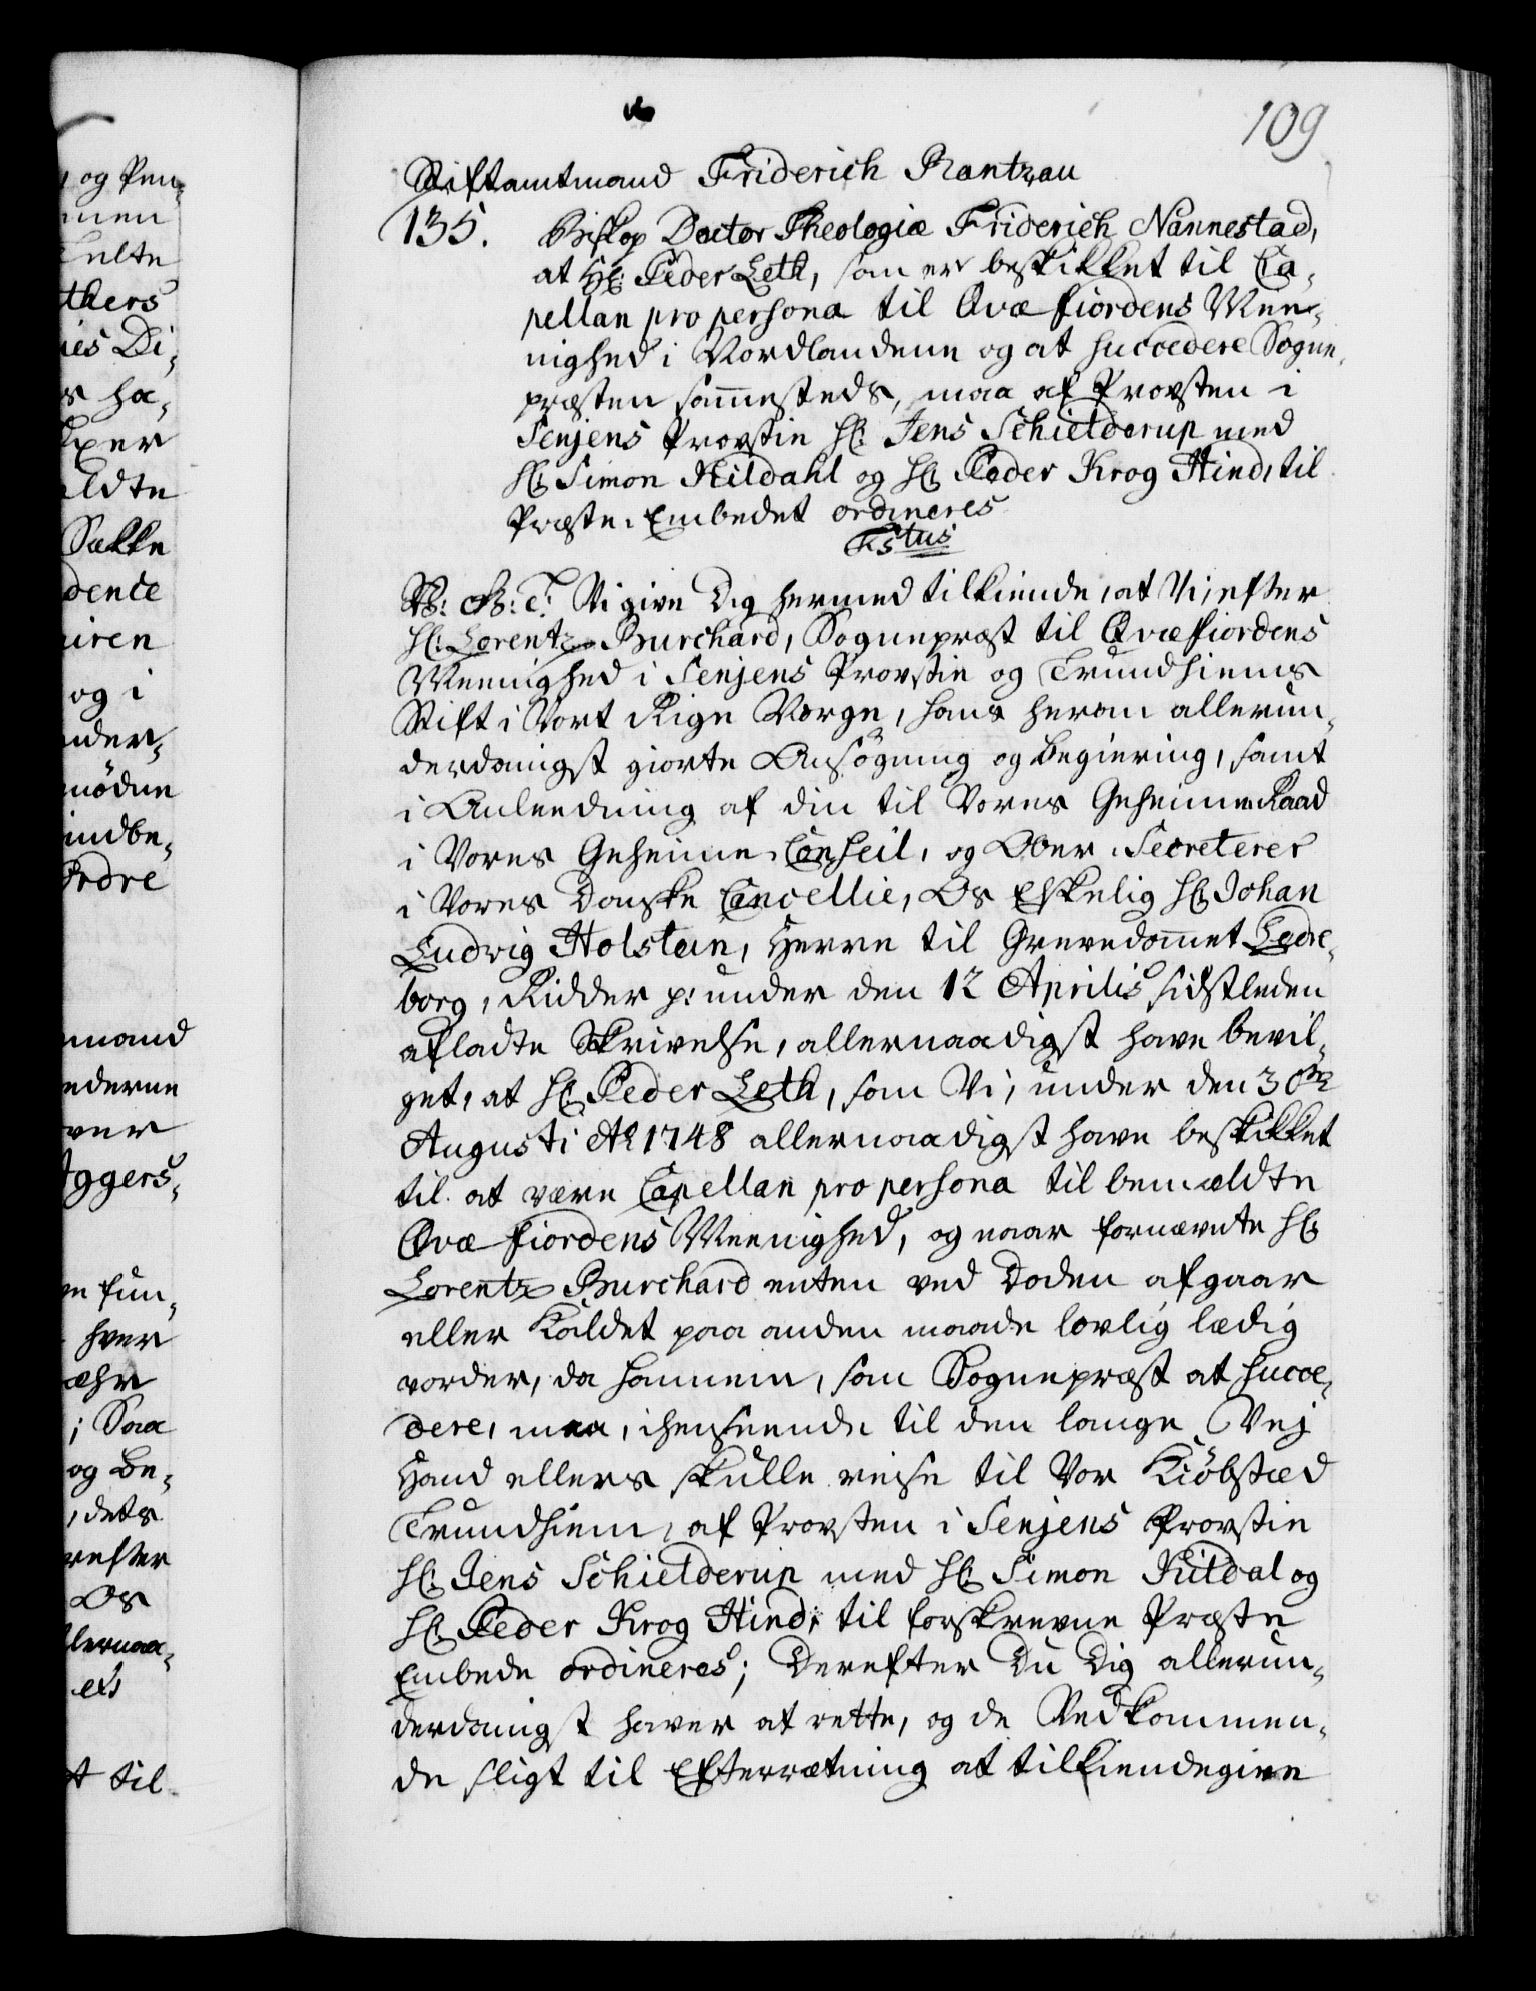 og Pen¬
109
Stiftamtmand Friderich Rantzau
135. Biskop Doctor Theologiæ Friderich Nannestad,
at Hr: Peder Leth, som er beskikket til Ca¬
pellan pro persona til Qvæfiordens Mee¬
nighed i Nordlandene og at succedere Sogne¬
præsten sammesteds, maa af Provsten i
Senjens Provstie Hr. Jens Schielderup med
Hr. Simon Kildahl og Hr. Peder Krog Hind, til
Præste-Embedet ordineres
Fstus
Vi give Dig hermed tilkiende, at Vi, efter
Hr: Lorentz Burchard, Sognepræst til Qvæfiordens
Meenighed i Senjens Provstie og Trundhiems
Stift i Vort Rige Norge, hans herom allerun¬
derdanigst giorte Ansøgning og begiering, samt
i Anleedning af din til Vores Geheime-Raad
i Vores Geheime-Conseil, og Ober-Secreterer
i Vores Danske Cancellie, Os Elskelig Hr. Johan
Ludvig Holstein, Herre til Grevedommet Ledre¬
borg, Ridder p: under den 12 Aprilis sidstleden
afladte Skrivelse, allernaadigst have bevil¬
get, at Hr. Peder Leth, som Vi, under den 30te
Augusti Ao 1748 allernaadigst have beskikket
til at være Capellan pro persona til bemældte
Qvæfiordens Meenighed, og naar fornævnte Hr.
Lorentz Burchard enten ved Døden afgaar
eller Kaldet paa anden maade lovlig lædig
vorder, da hannem, som Sognepræst at succe¬
dere, maa, i henseende til den lange Vej
Hand ellers skulle reise til Vor Kiøbstæd
Trundhiem, af Provsten i Senjens Provstie
Hr. Jens Schielderup med Hr. Simon Kildal og
Hr. Peder Krog Hind, til forskrevne Præste
Embede ordineres; Derefter Du Dig allerun¬
derdanigst haver at rette, og de Vedkommen¬
de sligt til Efterrætning at tilkiendegive